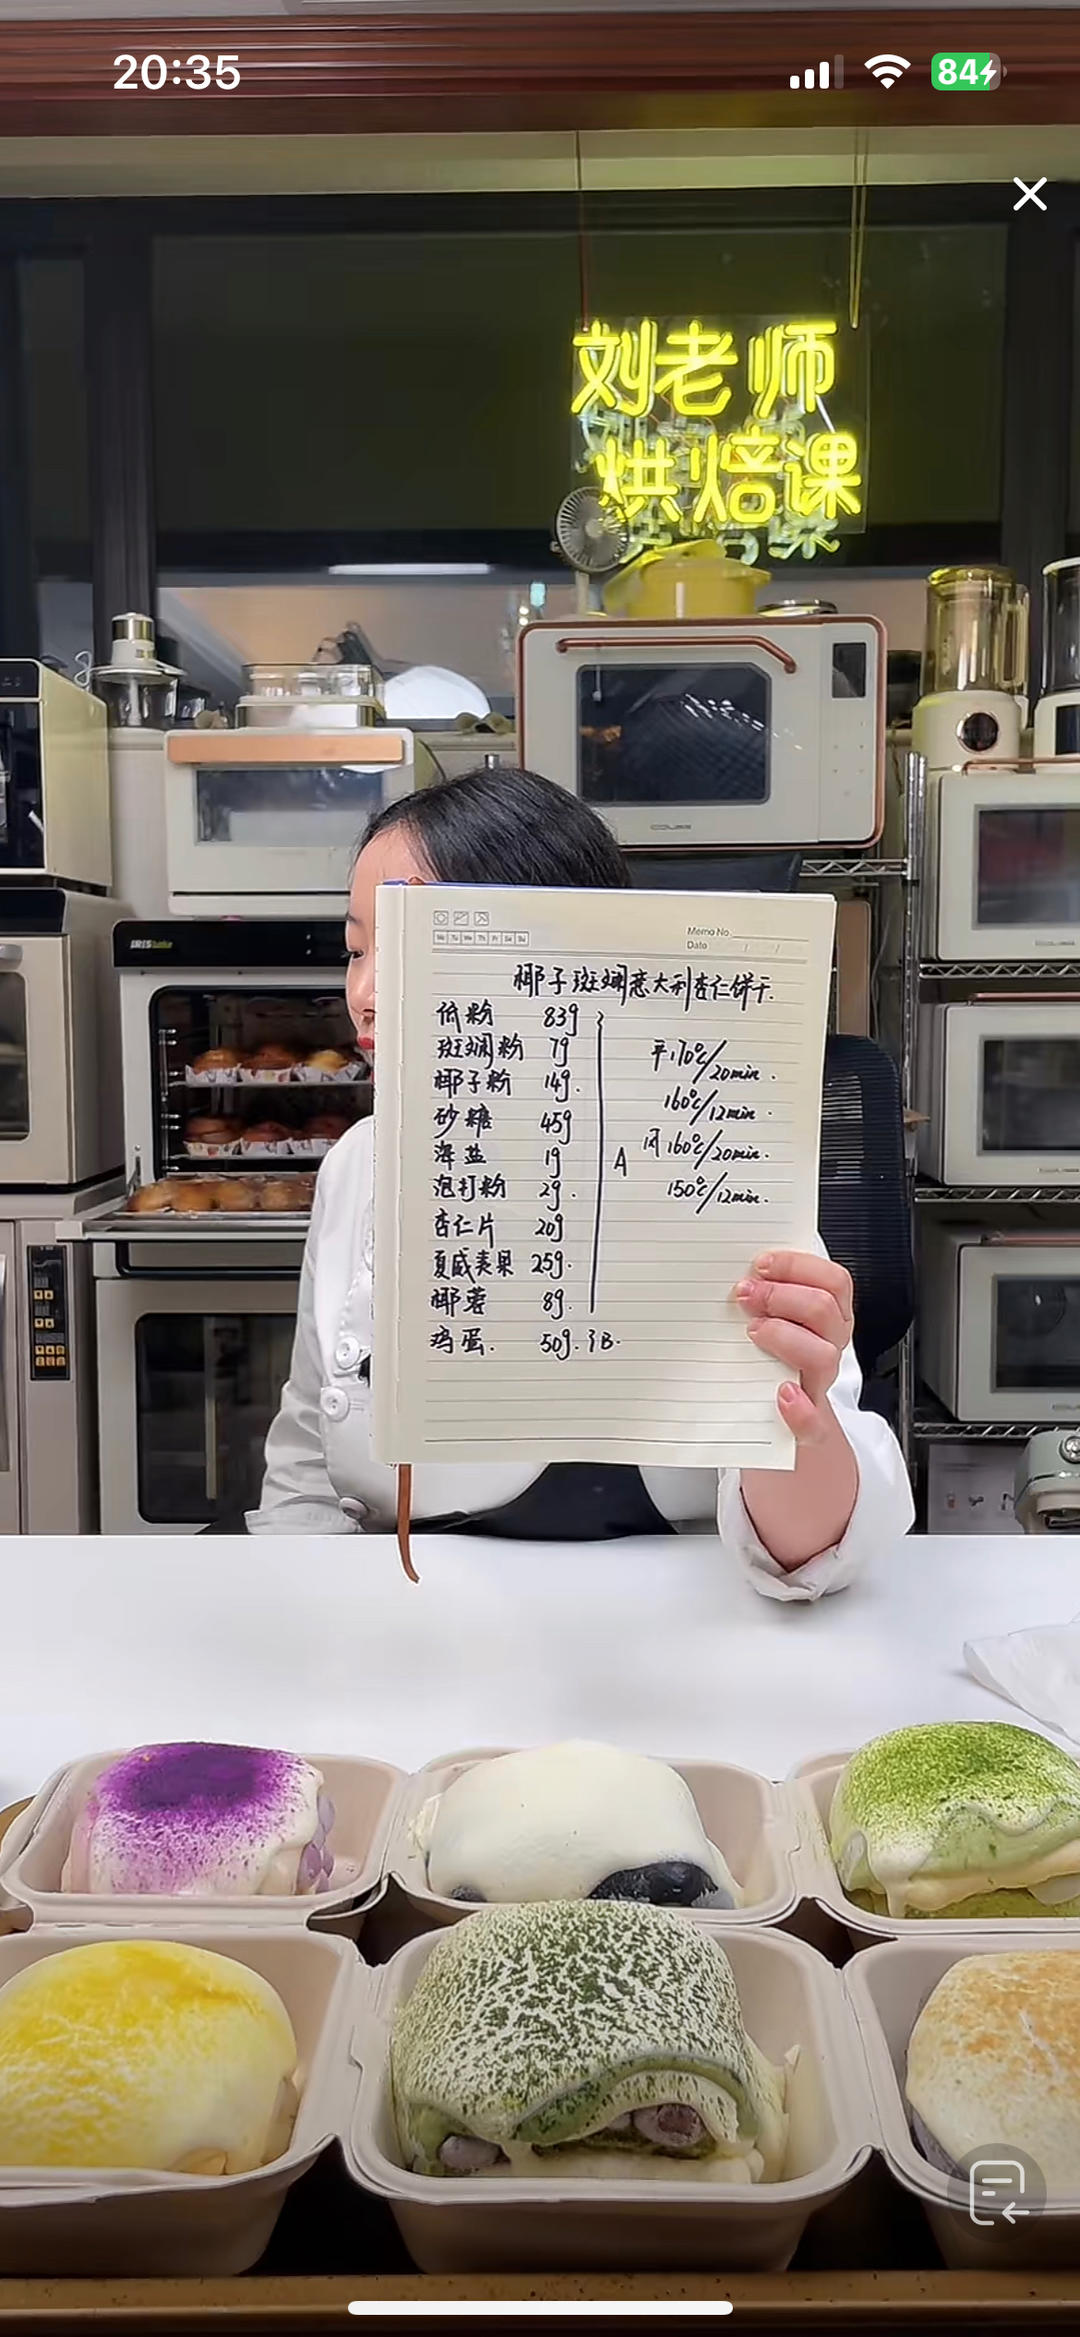 20:35
84
刘老师
烘焙课
IRIS bake
Memo No.
Date / /
Mo Tu We Th Fr Sa Su
椰子斑斓意大利杏仁饼干.
低粉 83g
斑斓粉 7g
椰子粉 14g.
砂糖 45g
海盐 1g
泡打粉 2g.
杏仁片 20g
夏威夷果 25g.
椰蓉 8g.
A
鸡蛋. 50g. }B.
平170℃/20min.
160℃/12min.
风160℃/20min.
150℃/12min.